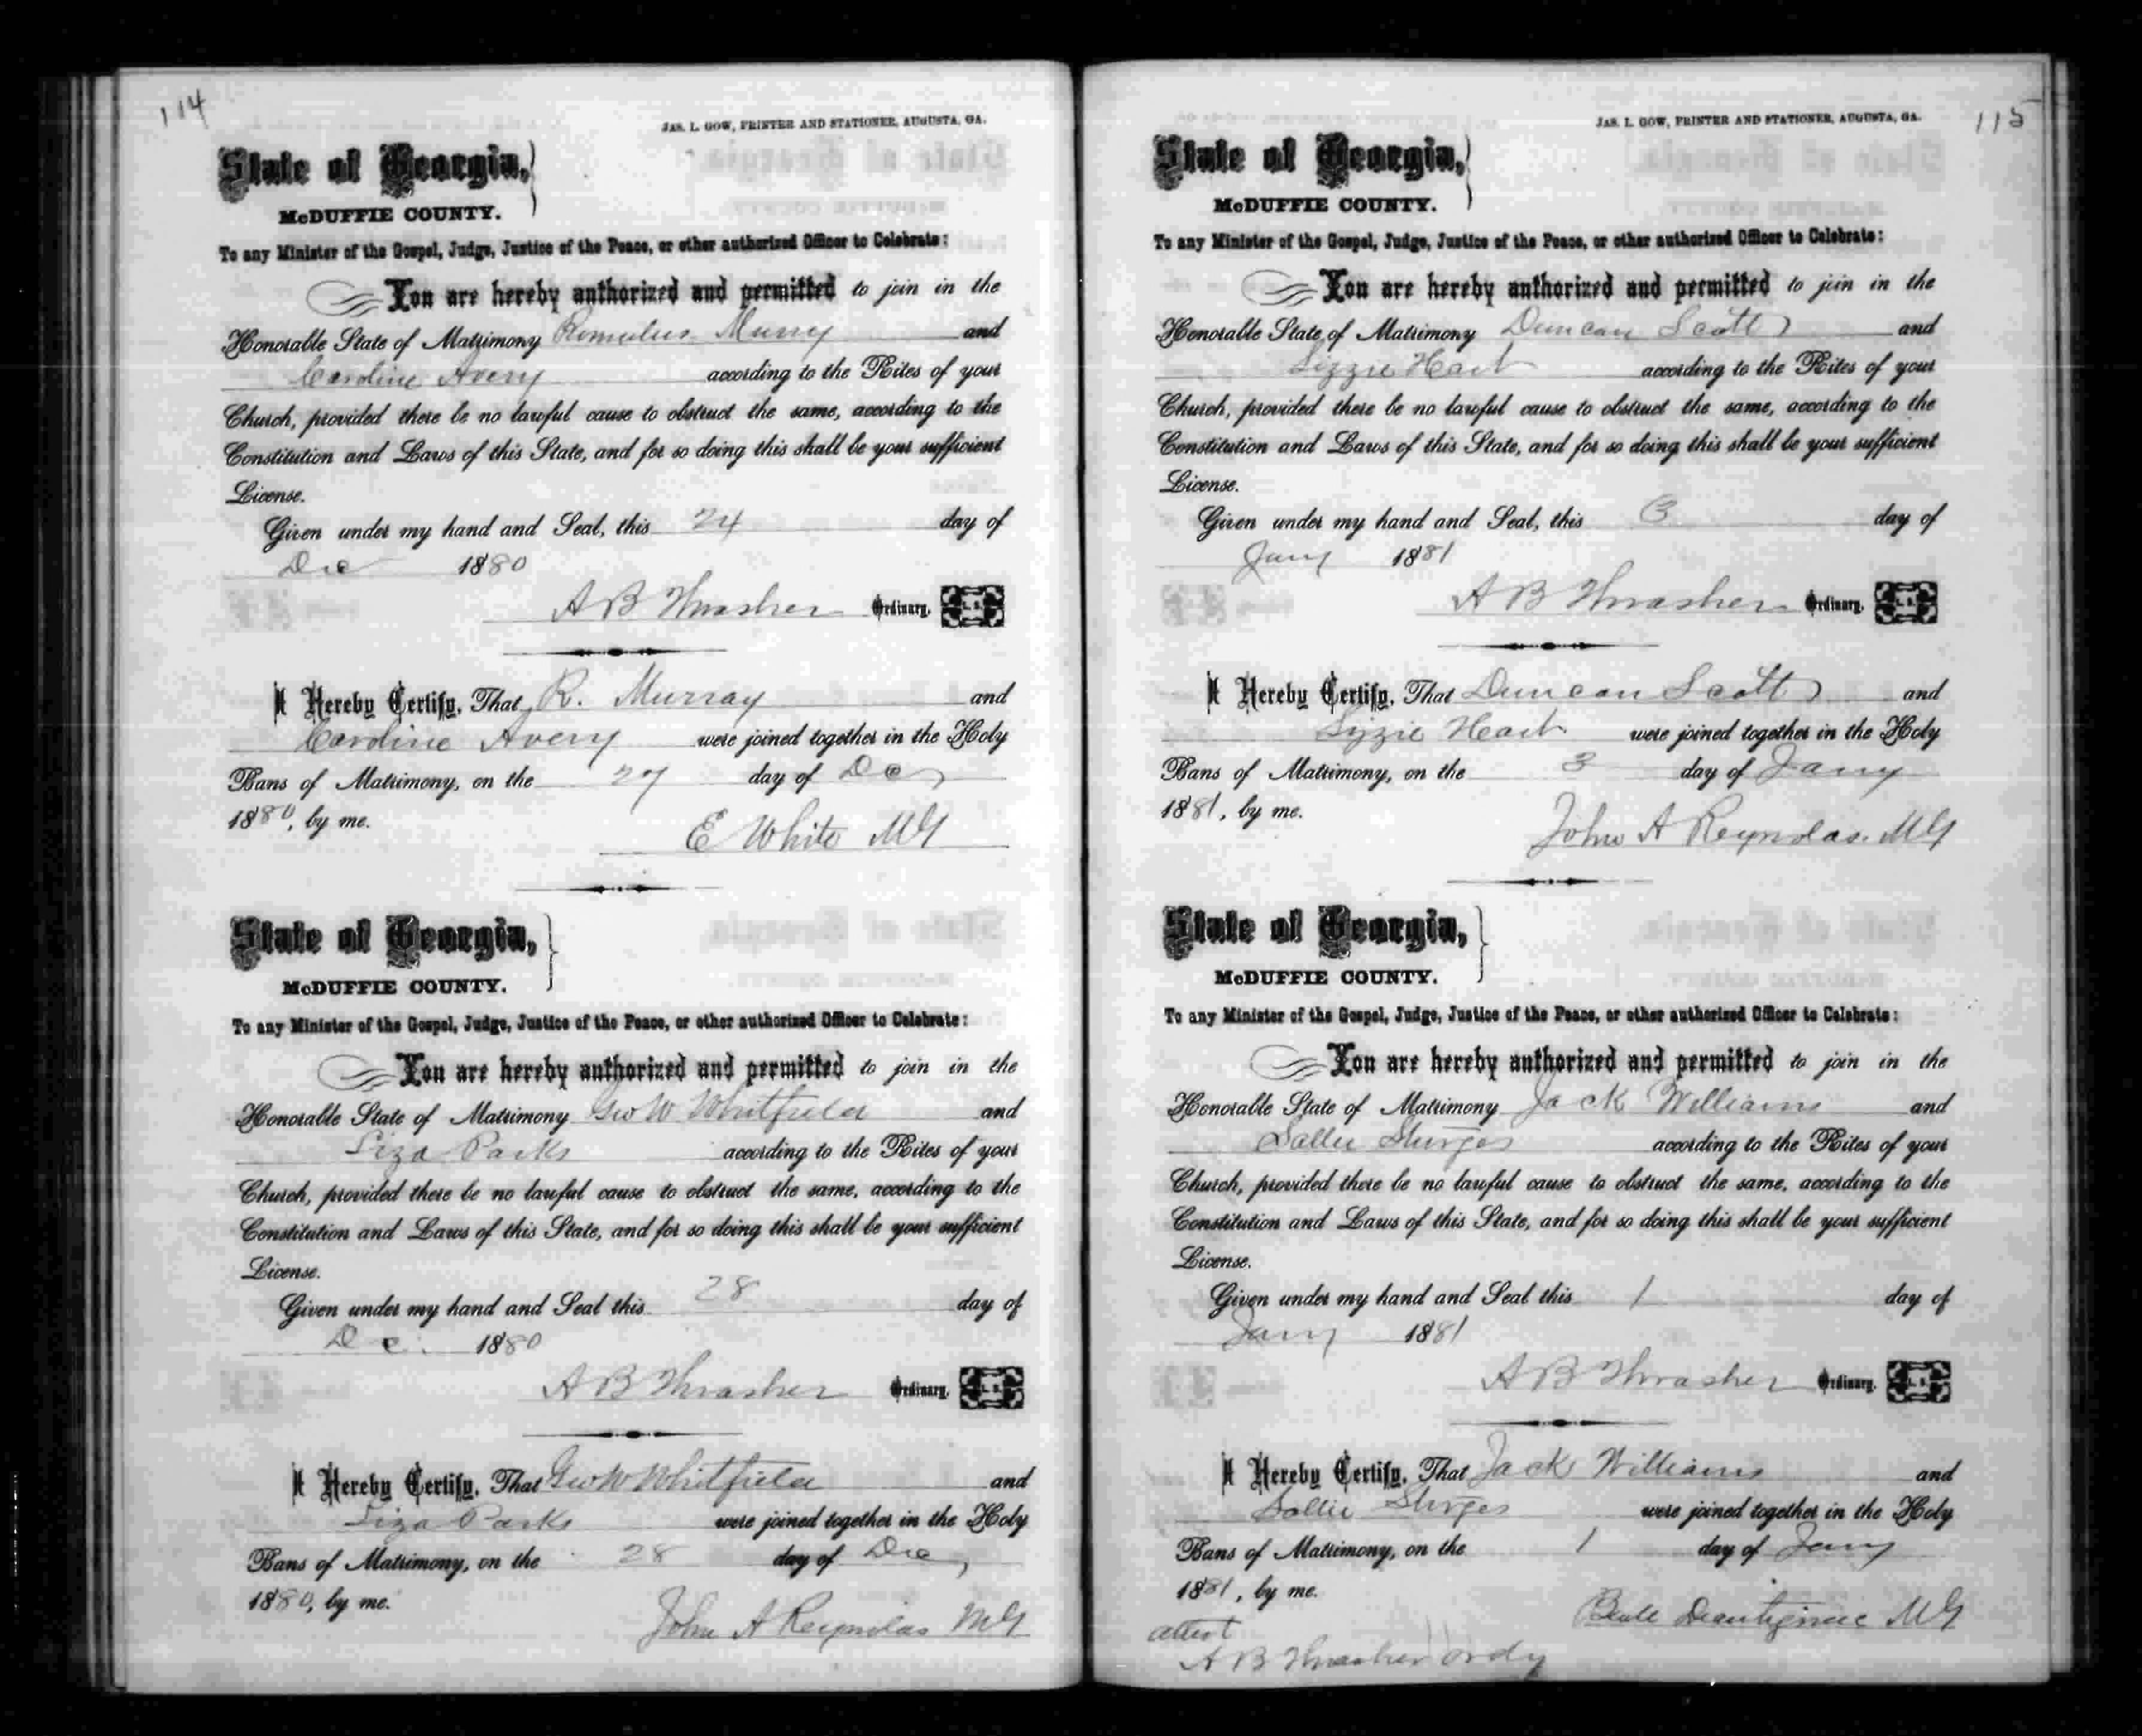 114
JAS. L. GOW, PRINTER AND STATIONER, AUGUSTA, GA.
State of Georgia,
McDUFFIE COUNTY.
To any Minister of the Gospel, Judge, Justice of the Peace, or other authorized Officer to Celebrate:
You are hereby authorized and permitted to join in the
Honorable State of Matrimony Romulus Murry and
Caroline Avery according to the Rites of your
Church, provided there be no lawful cause to obstruct the same, according to the
Constitution and Laws of this State, and for so doing this shall be your sufficient
License.
Given under my hand and Seal, this 24 day of
Dec 1880
A B Thrasher Ordinary. L. S.
I Hereby Certify, That R. Murray and
Caroline Avery were joined together in the Holy
Bans of Matrimony, on the 27 day of Dec
1880, by me.
E White MG
State of Georgia,
McDUFFIE COUNTY.
To any Minister of the Gospel, Judge, Justice of the Peace, or other authorized Officer to Celebrate:
You are hereby authorized and permitted to join in the
Honorable State of Matrimony Geo W Whitfield and
Liza Parks according to the Rites of your
Church, provided there be no lawful cause to obstruct the same, according to the
Constitution and Laws of this State, and for so doing this shall be your sufficient
License.
Given under my hand and Seal this 28 day of
Dec. 1880
A B Thrasher Ordinary. L. S.
I Hereby Certify, That Geo W Whitfield and
Liza Parks were joined together in the Holy
Bans of Matrimony, on the 28 day of Dec,
1880, by me.
John A Reynolds MG
115
JAS. L. GOW, PRINTER AND STATIONER, AUGUSTA, GA.
State of Georgia,
McDUFFIE COUNTY.
To any Minister of the Gospel, Judge, Justice of the Peace, or other authorized Officer to Celebrate:
You are hereby authorized and permitted to join in the
Honorable State of Matrimony Duncan Scott and
Lizzie Hart according to the Rites of your
Church, provided there be no lawful cause to obstruct the same, according to the
Constitution and Laws of this State, and for so doing this shall be your sufficient
License.
Given under my hand and Seal, this 3 day of
Jany 1881
A B Thrasher Ordinary. L. S.
I Hereby Certify, That Duncan Scott and
Lizzie Hart were joined together in the Holy
Bans of Matrimony, on the 3 day of Jany
1881, by me.
John A Reynolds. MG
State of Georgia,
McDUFFIE COUNTY.
To any Minister of the Gospel, Judge, Justice of the Peace, or other authorized Officer to Celebrate:
You are hereby authorized and permitted to join in the
Honorable State of Matrimony Jack Williams and
Sallie Sturges according to the Rites of your
Church, provided there be no lawful cause to obstruct the same, according to the
Constitution and Laws of this State, and for so doing this shall be your sufficient
License.
Given under my hand and Seal this 1 day of
Jany 1881
A B Thrasher Ordinary. L. S.
I Hereby Certify, That Jack Williams and
Sallie Sturges were joined together in the Holy
Bans of Matrimony, on the 1 day of Jany
1881, by me.
MG
attest
A B Thrasher Ordy